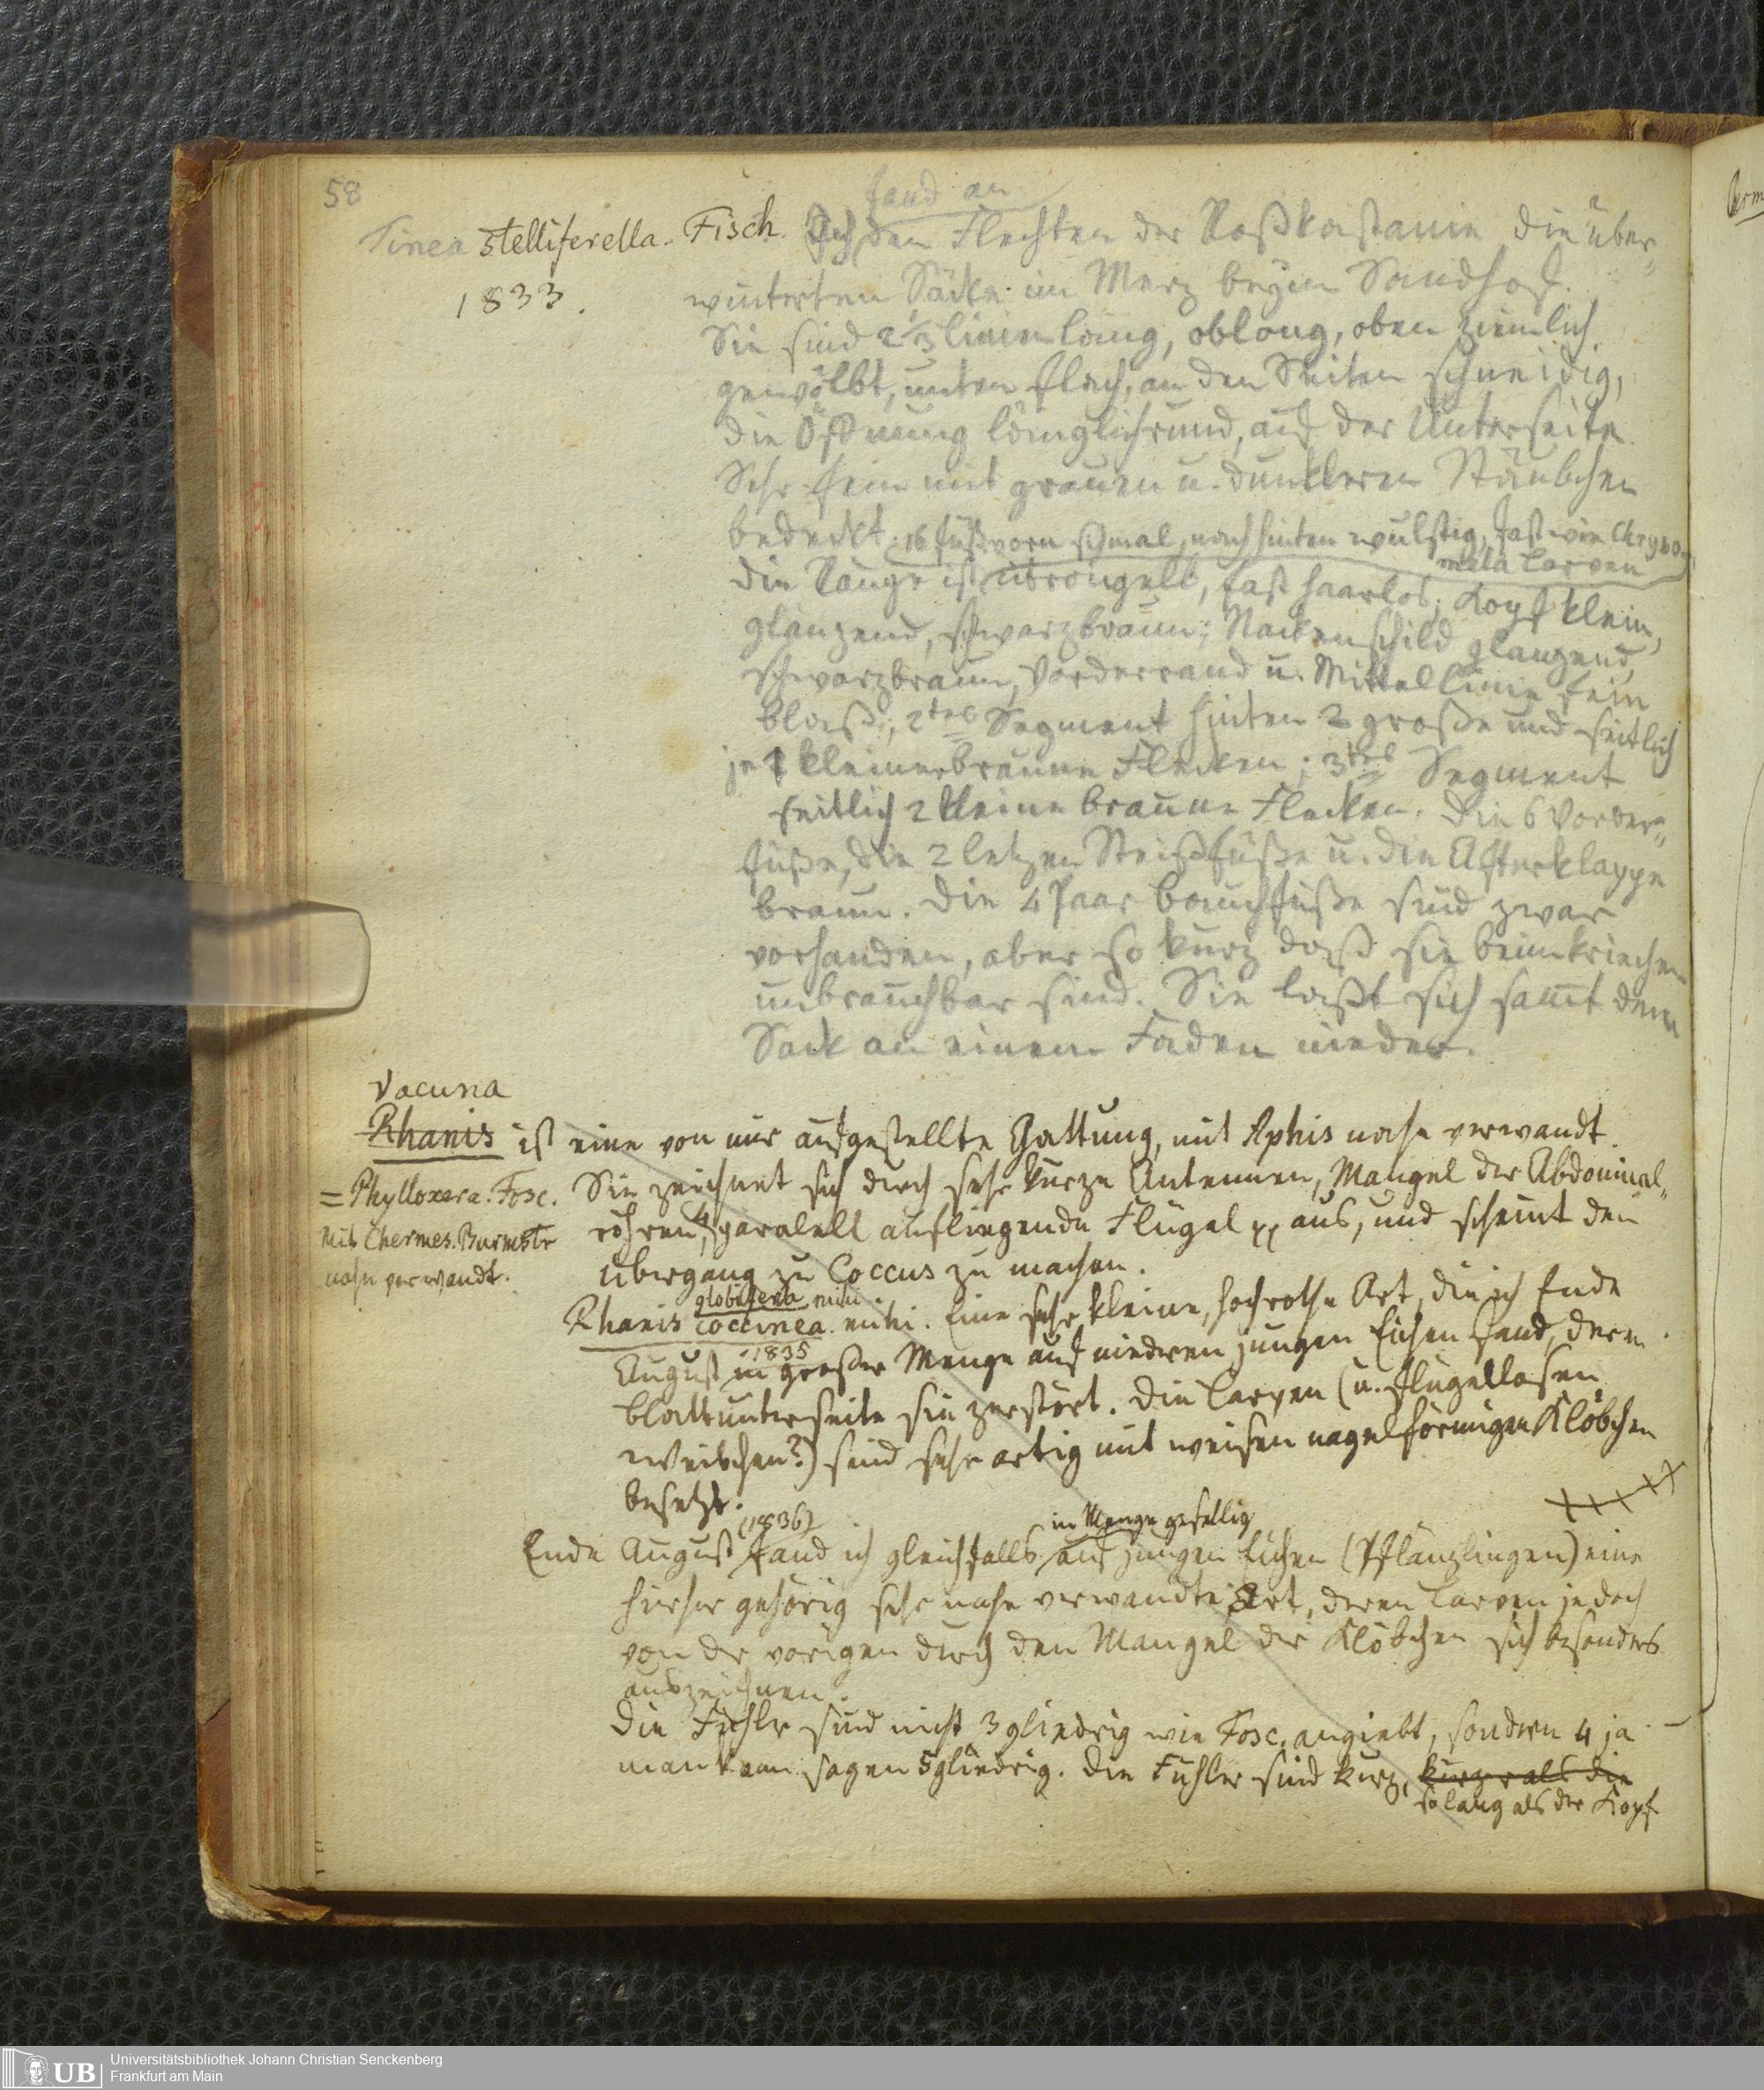 58
Tinea stelliferella. Fisch.
1833.
fand an
Ich den Flechten der Roßkastanie die über-
winterten Säcke im Merz beym Sandhof.
Sie sind 2 1/3 linien lang, oblong, oben ziemlich
gewölbt, unten flach, an den Seiten schneidig,
die Öffnung länglichrund, auf der Unterseite.
Sehr fein mit grauen u. dunklern Stäubchen
bedeckt. 16 füß. vorn schmal, nach hinten wulstig, fast wie Chryso-
mela Larven
die Raupe ist, fast haarlos; Kopf klein,
glänzend, schwarzbraun; Nackenschild glänzend,
schwarzbraun, Vorderrand u. Mittellinie fein
blaß; 2tes Segment hinten 2 große und seitlich
je 1 kleiner braune Flecken; 3tes Segment
seitlich 2 kleine braune Flecken. Die 6 Vorder-
füße, die 2 letzen Steißfüße u. die Afterklappe
braun. Die 4 Paar Bauchfüße sind zwar
vorhanden, aber so kurz daß sie beim kriechen
unbrauchbar sind. Sie laßt sich samt dem
Sack an einem Faden nieder.
Vacuna
Rhanis ist eine von mir aufgestellte Gattung, mit Aphis nahe verwandt.
= Phylloxera. Fosc.
mit Chermes. Burmstr
nahe verwandt.
Sie zeichnet sich durch sehr kurze Antennen, Mangel der Abdominal-
röhren, 4 paralell aufliegende Flügel pp aus, und scheint den
Übergang zu Coccus zu machen.
globifera mihi.
Rhanis coccinea. mihi. Eine sehr kleine, hochrothe Art, die ich Ende
1835
August in großer Menge auf niedren jungen Eichen fand, deren
Blattunterseite sie zerstört. Die Larven (u. flügellosen
Weibchen?) sind sehr artig mit weisen nagelförmigen Klöbchen
besetzt.
(1836)
in Menge gesellig
Ende August fand ich gleichfalls auf jungen Eichen (Pflänzlingen) eine
hieher gehörig sehr nahe verwandte Art, deren Larven jedoch
von der vorigen durch den Mangel der Klöbchen sich besonders
auszeichnen.
Die Fühler sind nicht 3 gliedrig wie Fosc. angiebt, sondern 4 ja
man kann sagen 5gliedrig. Die Fühler sind kurz, kürzer als die
so lang als der Kopf
Universitätsbibliothek Johann Christian Senckenberg
UB
Frankfurt am Main